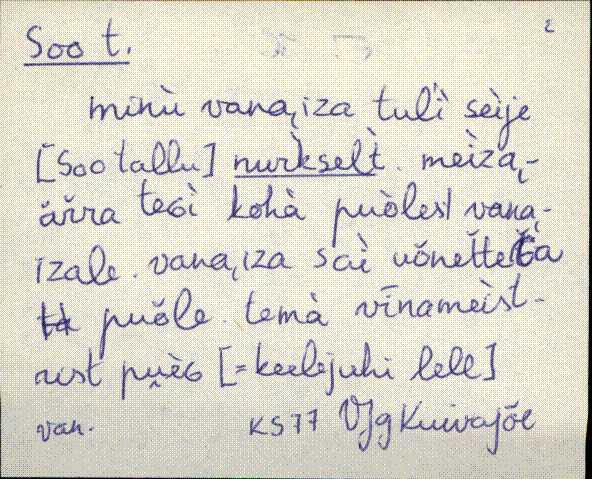 2
Soo t.
minù vana,iza tuĺì sèije
[Soo tallu] nuŕkselt̀. meìza,-
ärra teGì kohà puòlest vana,-
izale. vana,iza saì uǒnet̆te
puǒle. temà vīnameìst-
rist puèG [= keelejuhi lell]
van. KS77 VJg Kuivajõe